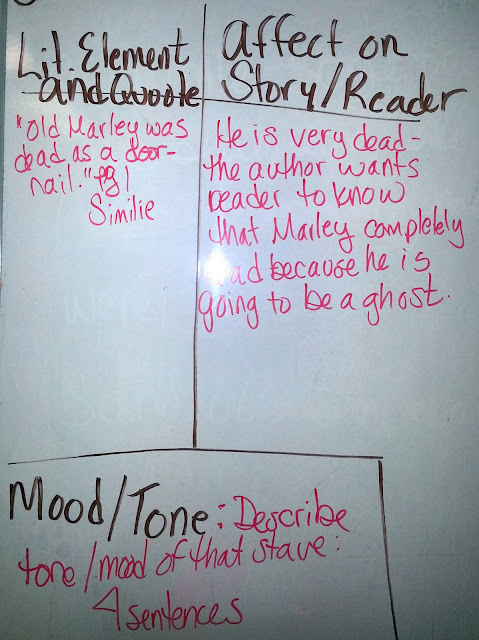 Lit. Element
and Quote
"Old Marley was
dead as a door-
nail." pg 1
Similie
Affect on
Story/Reader
He is very dead-
the author wants
reader to know
that Marley completely
dead because he is
going to be a ghost.
Mood/Tone: Describe
tone/mood of that stave:
4 sentences